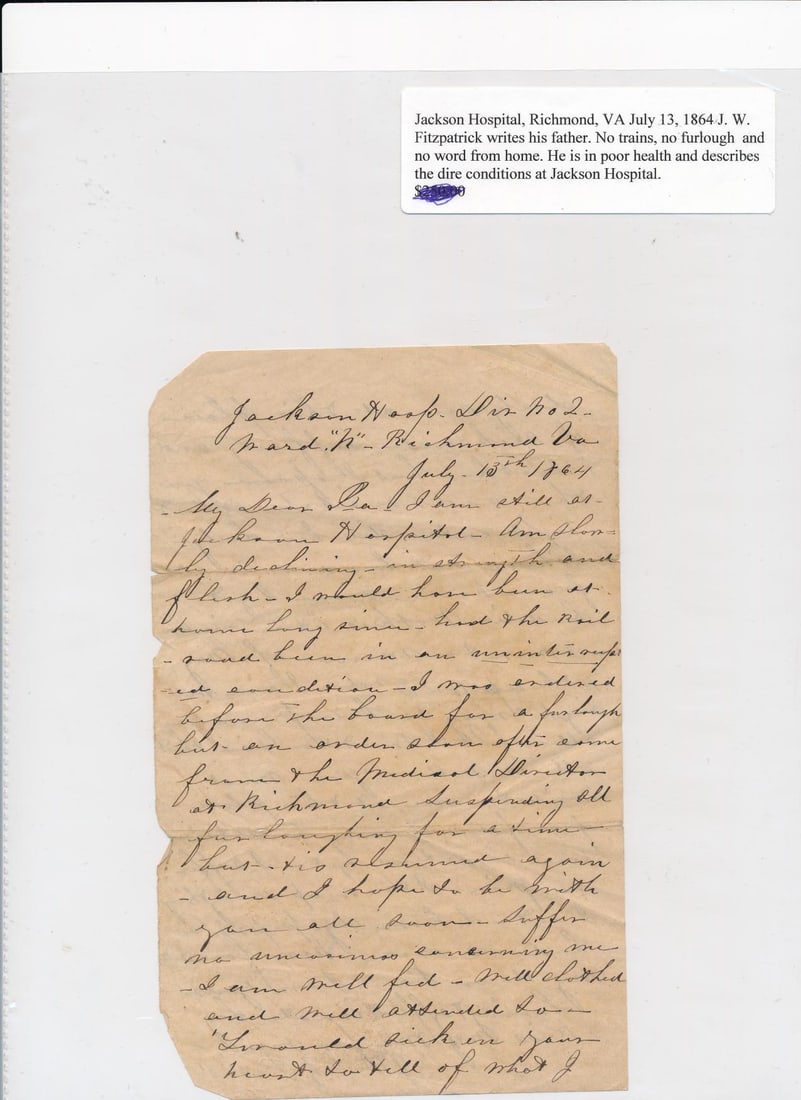 Jackson Hospital, Richmond, VA July 13, 1864 J. W.
Fitzpatrick writes his father. No trains, no furlough and
no word from home. He is in poor health and describes
the dire conditions at Jackson Hospital.
Jackson Hosp. Div No 2-
Ward "K" - Richmond Va
July - 13th 1864
- My Dear Pa - I am still at
Jackson Hospital - Am slow-
ly declining - in strength and
flesh - I would have been at
home long since - had the Rail
- road been in an uninterrupt
-ed condition - I was ordered
before the board for a furlough
but an order soon after came
from the Medical Director
at Richmond suspending all
furloughing for a time
but - tis resumed again
- and I hope to be with
you all soon - suffer
no uneasiness concerning me
- I am well fed - well clothed
and well attended to -
'Twould sicken your
heart to tell of what I